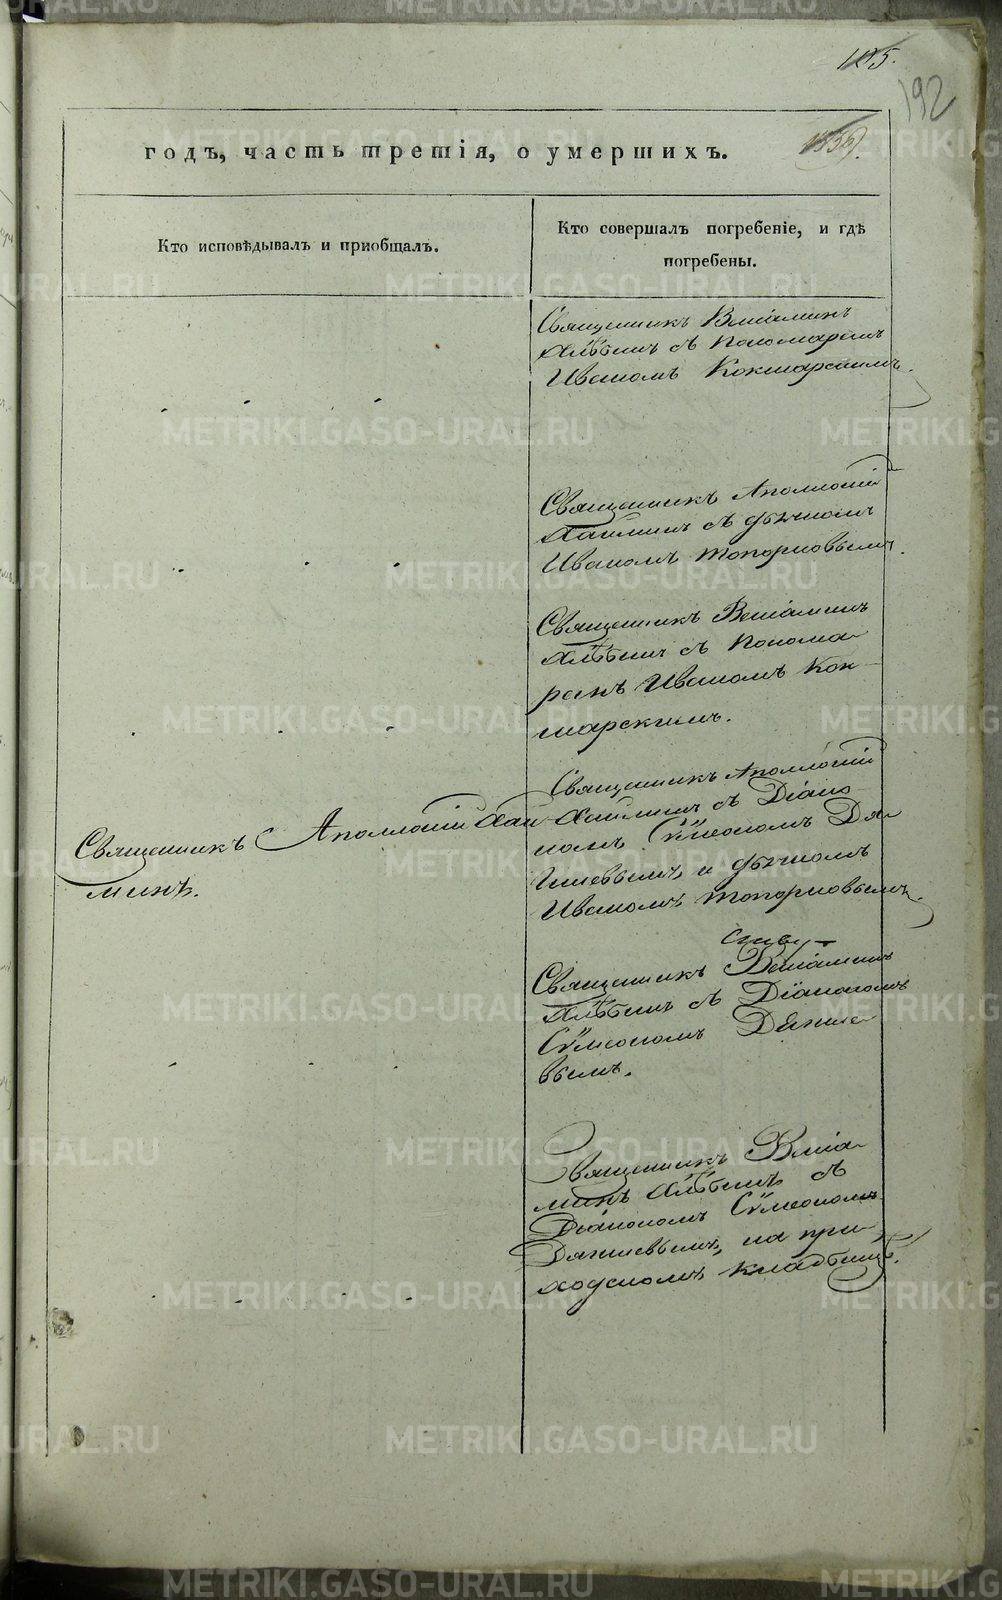 105.
192
годъ, часть третія, о умершихъ.
Кто исповѣдывалъ и приобщалъ.
Кто совершалъ погребеніе, и гдѣ
погребены.
Священникъ Веніаминъ
Хлѣбинъ съ Пономаремъ
Иваномъ Кокшарскимъ.
Священникъ Аполлоній
Хаиминъ съ дьячкомъ
Иваномъ Топорковымъ.
Священникъ Веніаминъ
Хлѣбинъ съ Понома-
ремъ Иваномъ Кок-
шарскимъ.
Священникъ Аполлоній Хаи-
минъ.
Священникъ Аполлоній
Хаиминъ съ Діако-
номъ Сѵмеономъ Дяг-
илевымъ, и дьячкомъ
Иваномъ Топорковымъ.
Священникъ Веніаминъ
Хлѣбинъ съ Діакономъ
Сѵмеономъ Дягиле-
вымъ.
Священникъ Веніа-
минъ Хлѣбинъ, съ
Діакономъ Сѵмеономъ
Дягилевымъ, на при-
ходскомъ кладбищѣ.
METRIKI.GASO-URAL.RU